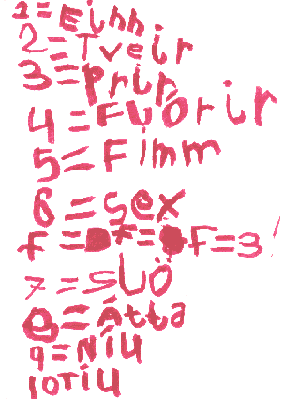 1=Einn.
2=Tveir
3=Þrir
4=FUÓrir
5=Fimm
6=Sex
F= F= F=3
7=SUÖ
8=Átta
9=NíU
10TíU